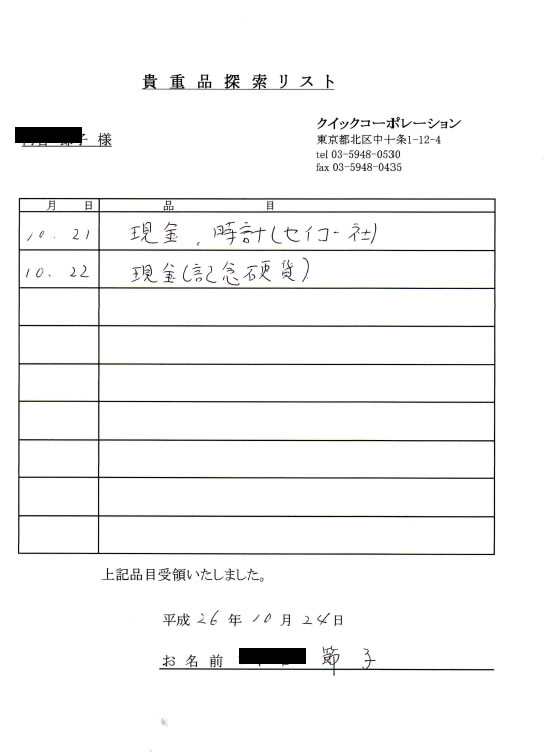 貴重品探索リスト
子 様
クイックコーポレーション
東京都北区中十条1-12-4
tel 03-5948-0530
fax 03-5948-0435
月 日 品 目
10. 21 現金、時計(セイコー社)
10. 22 現金(記念硬貨)
上記品目受領いたしました。
平成 26 年 10 月 24 日
お名前 節子